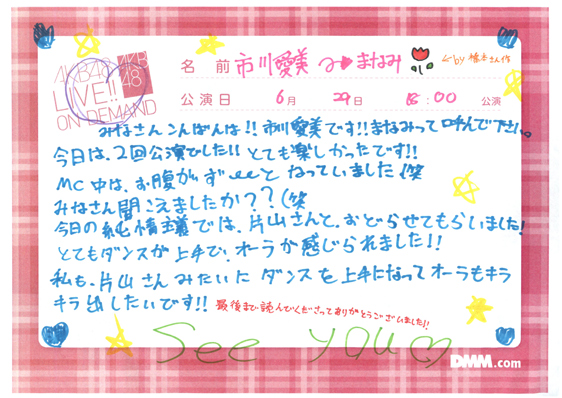 AKB48 AKB48
LIVE!!
ON DEMAND
名 前 市川愛美 まなみ by 橋本さん作
公演日 6月 29日 18:00 公演
みなさんこんばんは!! 市川愛美です!! まなみって呼んで下さい。
今日は、2回公演でした!! とても楽しかったです!!
MC中は、お腹がずーーと なっていました(笑
みなさん聞こえましたか??(笑
今日の純情主義では、片山さんと、おどらせてもらいました!
とてもダンスが上手で、オーラが感じられました!!
私も、片山さんみたいに ダンスを上手になってオーラもキラ
キラ出したいです!! 最後まで読んでくださってありがとうございました!!
See you
DMM.com